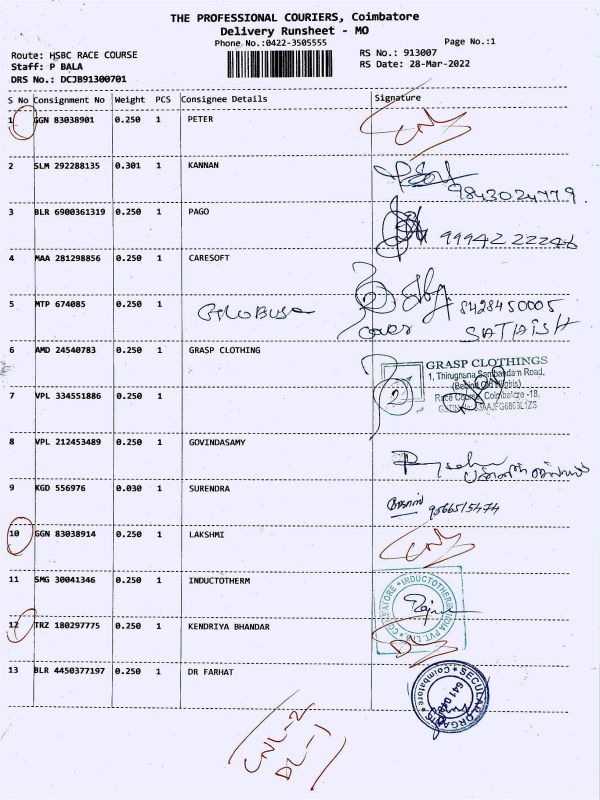 THE PROFESSIONAL COURIERS, Coimbatore
Delivery Runsheet - MO
Phone No.:0422-3505555
Page No.:1
Route: HSBC RACE COURSE
RS No.: 913007
Staff: P BALA
RS Date: 28-Mar-2022
DRS No.: DCJB91300701
S No Consignment No Weight PCS Consignee Details Signature
1 GGN 83038901 0.250 1 PETER
2 SLM 292288135 0.301 1 KANNAN
9843024779
3 BLR 6900361319 0.250 1 PAGO
9994222246
4 MAA 281298856 0.250 1 CARESOFT
5 MTP 674085 0.250 1 8428450005
cover SATHISH
6 AMD 24540783 0.250 1 GRASP CLOTHING
GRASP CLOTHINGS
1, Thirugnana Sambandam Road,
Race Course, Coimbatore -18.
7 VPL 334551886 0.250 1 2
8 VPL 212453489 0.250 1 GOVINDASAMY
9 KGD 556976 0.030 1 SURENDRA
10 GGN 83038914 0.250 1 LAKSHMI
CNL
11 SMG 30041346 0.250 1 INDUCTOTHERM
INDUCTOTHERM INDIA PVT. LTD. COIMBATORE
12 TRZ 180297775 0.250 1 KENDRIYA BHANDAR
DL
13 BLR 4450377197 0.250 1 DR FARHAT
SECULAR
Coimbatore
CNL-2
DL-1